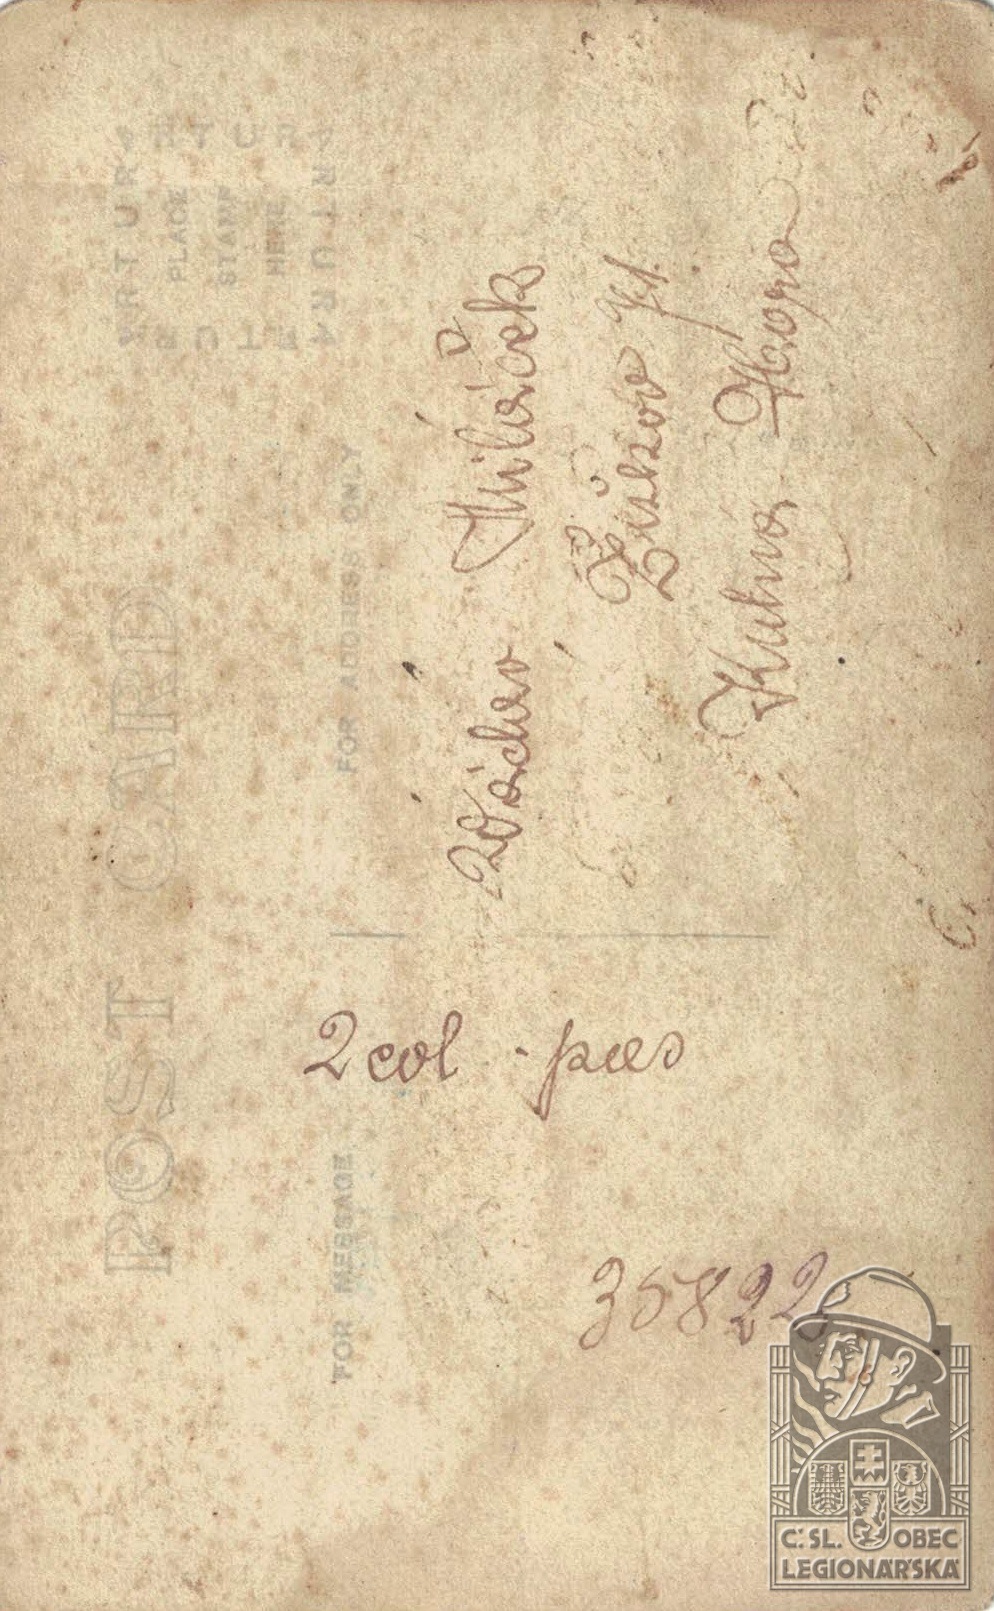 ARTURA
PLACE
STAMP
HERE
ARTURA
POST CARD
FOR ADDRESS ONLY
FOR MESSAGE
Miláček
Žižkov 71.
Kutná Hora
2 col pas
35822
Č. SL. OBEC
LEGIONÁŘSKÁ